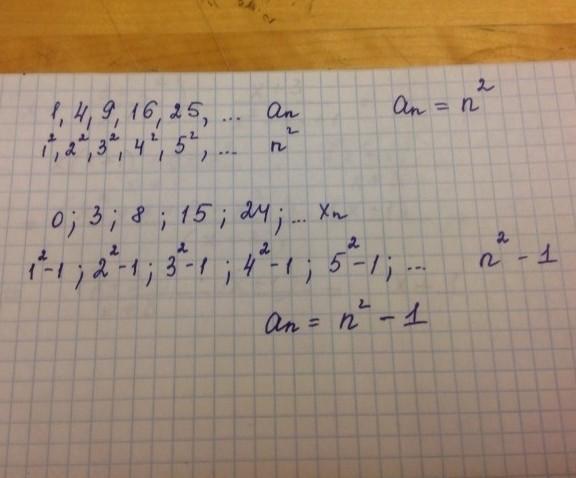 1, 4, 9, 16, 25, ... aₙ aₙ = n²
1², 2², 3², 4², 5², ... n²
0; 3; 8; 15; 24; ... xₙ
1²-1; 2²-1; 3²-1; 4²-1; 5²-1; ... n² - 1
aₙ = n² - 1